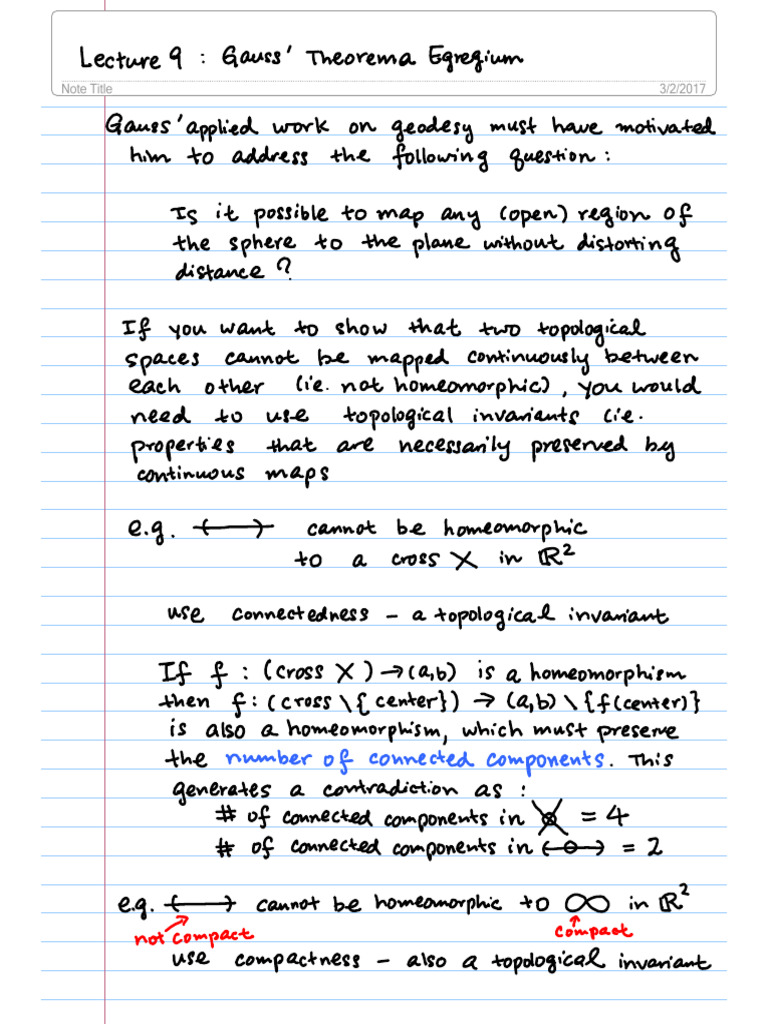 Lecture 9 : Gauss' Theorema Egregium
Note Title 3/2/2017
Gauss' applied work on geodesy must have motivated
him to address the following question :
Is it possible to map any (open) region of
the sphere to the plane without distorting
distance ?
If you want to show that two topological
spaces cannot be mapped continuously between
each other (ie. not homeomorphic), you would
need to use topological invariants (i.e.
properties that are necessarily preserved by
continuous maps
e.g. ↔ cannot be homeomorphic
to a cross X in ℝ²
use connectedness – a topological invariant
If f : (cross X) → (a,b) is a homeomorphism
then f : (cross \ {center}) → (a,b) \ {f(center)}
is also a homeomorphism, which must preserve
the number of connected components. This
generates a contradiction as :
# of connected components in X = 4
# of connected components in ↔ = 2
e.g. ↔ cannot be homeomorphic to ∞ in ℝ²
not compact compact
use compactness – also a topological invariant